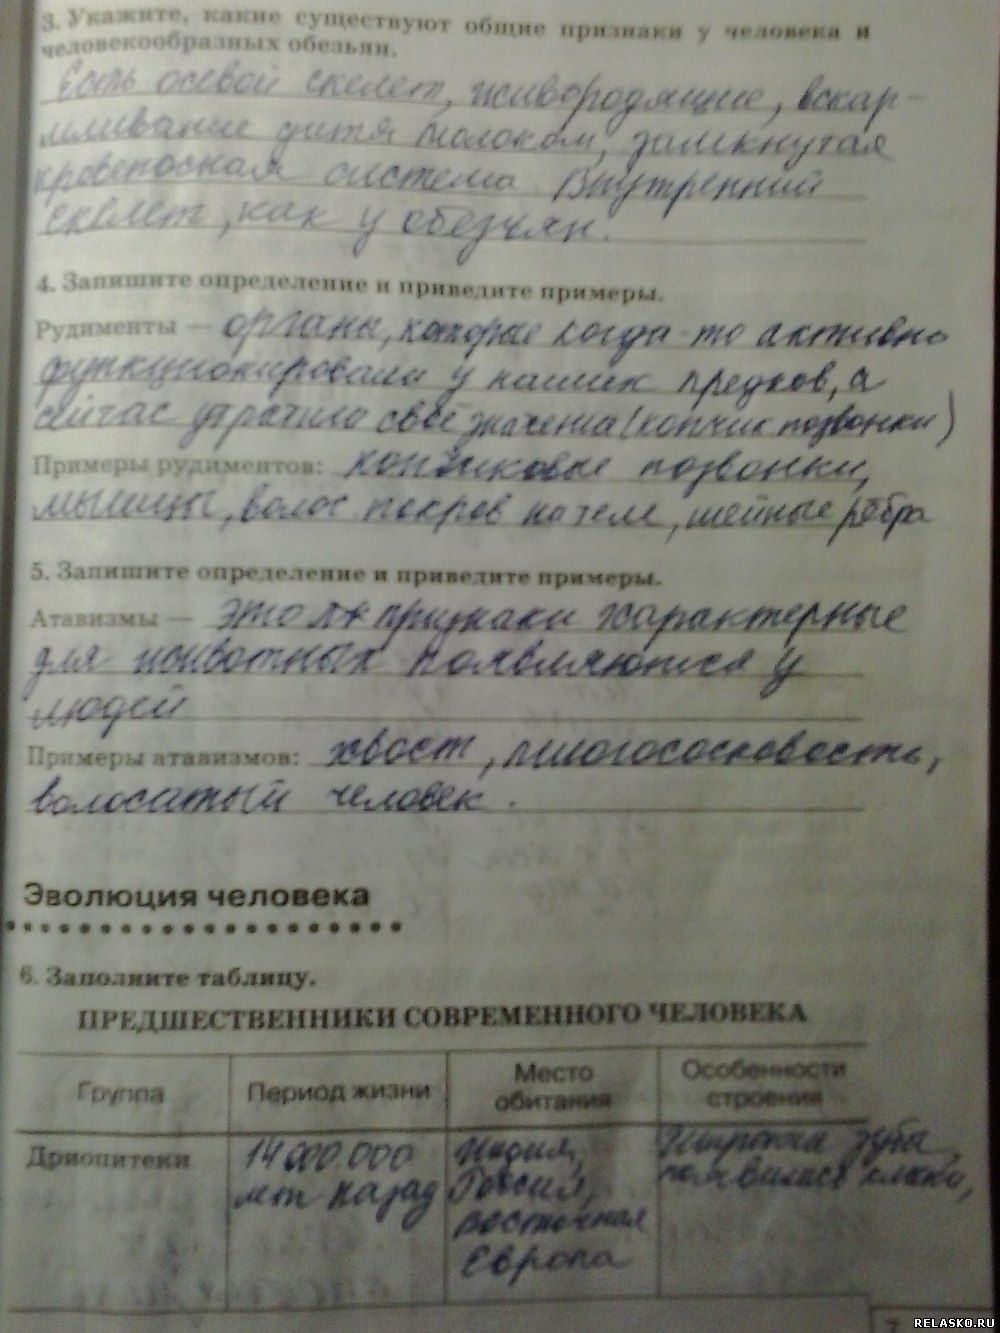 3. Укажите, какие существуют общие признаки у человека и
человекообразных обезьян.
Есть осевой скелет, живородящие, вскар-
мливание дитя молоком, замкнутая
кровеносная система. Внутренний
скелет, как у обезьян.
4. Запишите определение и приведите примеры.
Рудименты — органы, которые когда-то активно
функционировали у наших предков, а
сейчас утратили своё значения (копчик позвонки)
Примеры рудиментов: копчиковые позвонки,
мышцы, волос покров на теле, шейные рёбра
5. Запишите определение и приведите примеры.
Атавизмы — это признаки характерные
для животных появляются у
людей
Примеры атавизмов: хвост, многососковость,
волосатый человек.
Эволюция человека
6. Заполните таблицу.
ПРЕДШЕСТВЕННИКИ СОВРЕМЕННОГО ЧЕЛОВЕКА
Группа Период жизни Место обитания Особенности строения
Дриопитеки 14 000.000 Индия, зубы,
лет назад Россия, появились клыки,
восточная
Европа
7
RELASKO.RU